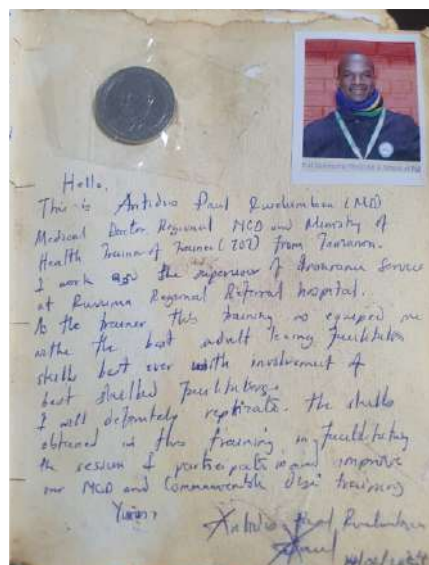 Hello,
This is Antidius Paul (MD)
Medical Doctor Regional NCD and Ministry of
Health Trainer of Trainer (TOT) from Tanzania.
I work as the supervisor of Insurance Service
at Ruvuma Regional Referral hospital.
As the trainer this training equiped me
withe the best adult learning facilitation
skills best ever with involvement of
best skilled facilitators.
I will definately replicate. the skills
obtained in this training in facilitating
the session I participate in and improve
our NCD and Communicable training
Yours,
Antidius Paul